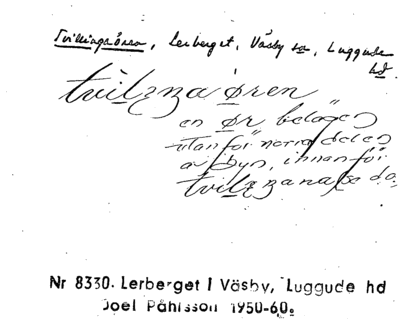 Tvillingaörna, Lerberget, Väsby sn, Luggude
hd.
tvilzna øren
en ør belägen
utanför norra delen
av byn, innanför
tvilzzana
Nr 8330. Lerberget i Väsby, Luggude hd
Joel Påhlsson 1950-60.